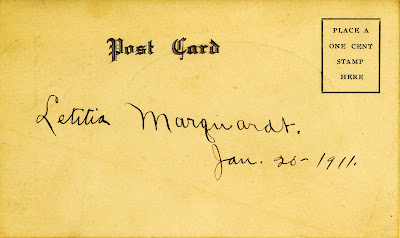 Post Card
PLACE A
ONE CENT
STAMP
HERE
Letitia Marquardt.
Jan. 20-1911.